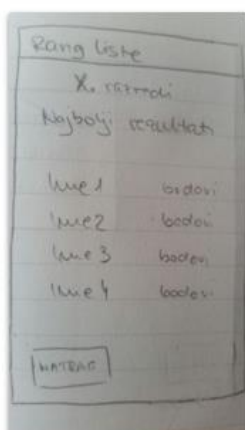 Rang liste
X. razredi
Najbolji rezultati
Ime 1 bodovi
Ime 2 bodovi
Ime 3 bodovi
Ime 4 bodovi
NATRAG